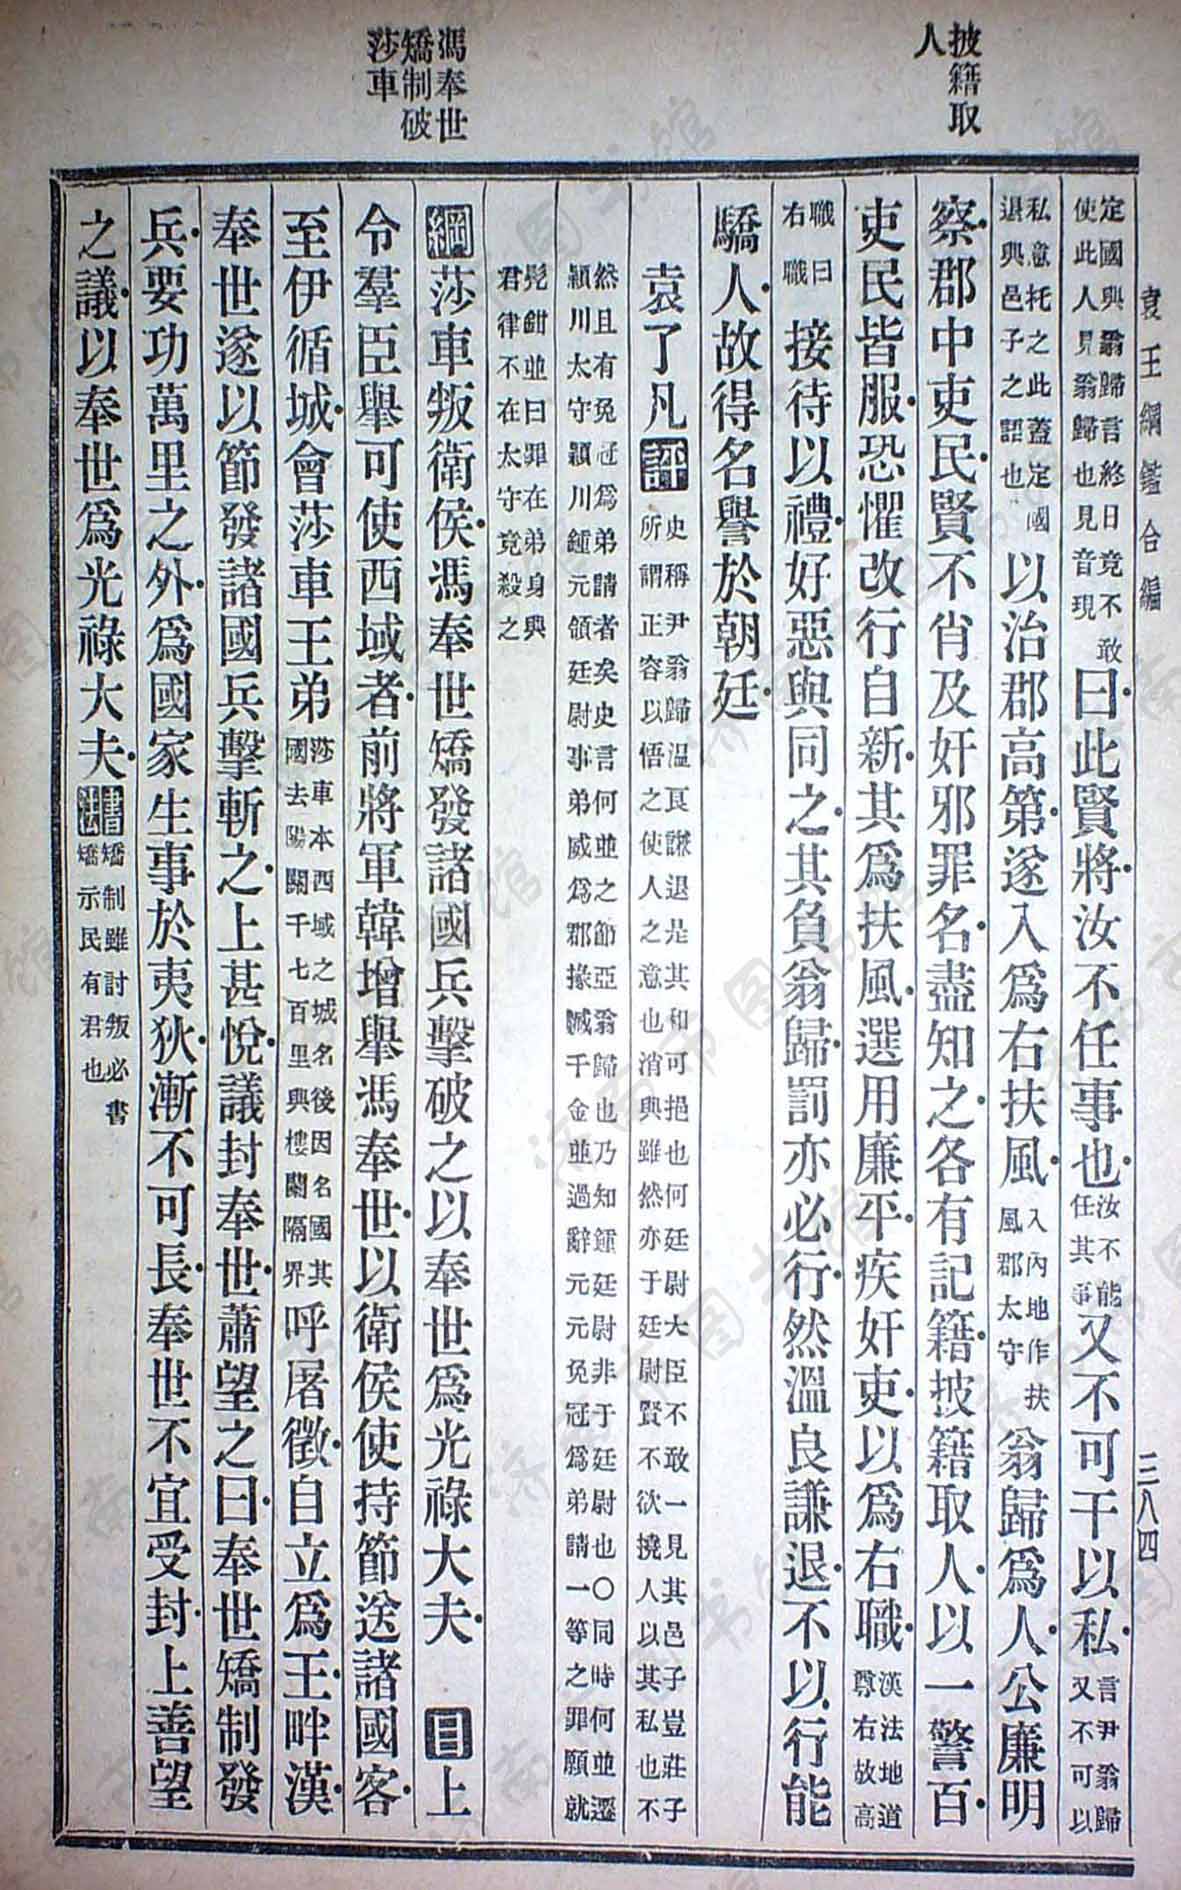 披籍取人
馮奉世矯制破莎車
袁王綱鑑合編　三八四
定國與翁歸言終日竟不敢使此人見翁歸也見音現曰此賢將汝不任事也汝不能任其事又不可干以私言尹翁歸又不可以
私意托之此蓋定國退與邑子之語也以治郡高第遂入爲右扶風入內地作扶風郡太守翁歸爲人公廉明
察郡中吏民賢不肖及奸邪罪名盡知之各有記籍披籍取人以一警百
吏民皆服恐懼改行自新其爲扶風選用廉平疾奸吏以爲右職漢法地道尊右故高
職曰右職接待以禮好惡與同之其負翁歸罰亦必行然溫良謙退不以行能
驕人故得名譽於朝廷
袁了凡評史稱尹翁歸溫良謙退是其和可挹也何廷尉大臣不敢一見其邑子豈莊子所謂正容以悟之使人之意也消與雖然亦于廷尉賢不欲撓人以其私也不
然且有免冠爲弟請者矣史言何並之節亞翁歸也乃知鍾廷尉非于廷尉也○同時何並遷潁川太守潁川鍾元領廷尉事弟威爲郡掾贓千金並過辭元元免冠爲弟請一等之罪願就
髡鉗並曰罪在弟身與君律不在太守竟殺之
綱莎車叛衛侯馮奉世矯發諸國兵擊破之以奉世爲光祿大夫　目上
令羣臣舉可使西域者前將軍韓增舉馮奉世以衛侯使持節送諸國客
至伊循城會莎車王弟莎車本西域之城名後因名國其國去陽關千七百里與樓蘭隔界呼屠徵自立爲王畔漢
奉世遂以節發諸國兵擊斬之上甚悅議封奉世蕭望之曰奉世矯制發
兵要功萬里之外爲國家生事於夷狄漸不可長奉世不宜受封上善望
之議以奉世爲光祿大夫書法矯制雖討叛必書矯示民有君也